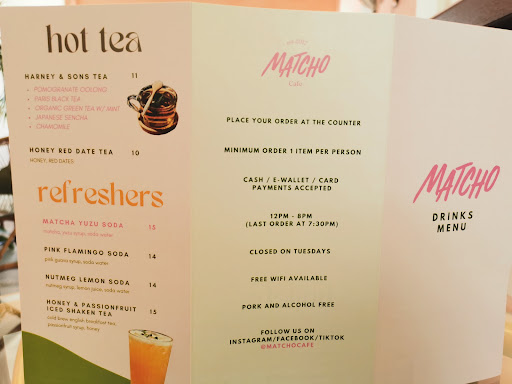 hot tea
HARNEY & SONS TEA 11
• POMOGRANATE OOLONG
• PARIS BLACK TEA
• ORGANIC GREEN TEA W/ MINT
• JAPANESE SENCHA
• CHAMOMILE
HONEY RED DATE TEA 10
HONEY, RED DATES
refreshers
MATCHA YUZU SODA 15
matcha, yuzu syrup, soda water
PINK FLAMINGO SODA 14
pink guava syrup, soda water
NUTMEG LEMON SODA 14
nutmeg syrup, lemon juice, soda water
HONEY & PASSIONFRUIT 15
ICED SHAKEN TEA
cold brew english breakfast tea,
passionfruit syrup, honey
MATCHO
Cafe
PLACE YOUR ORDER AT THE COUNTER
MINIMUM ORDER 1 ITEM PER PERSON
CASH / E-WALLET / CARD
PAYMENTS ACCEPTED
12PM - 8PM
(LAST ORDER AT 7:30PM)
CLOSED ON TUESDAYS
FREE WIFI AVAILABLE
PORK AND ALCOHOL FREE
FOLLOW US ON
INSTAGRAM/FACEBOOK/TIKTOK
@MATCHOCAFE
MATCHO
DRINKS
MENU